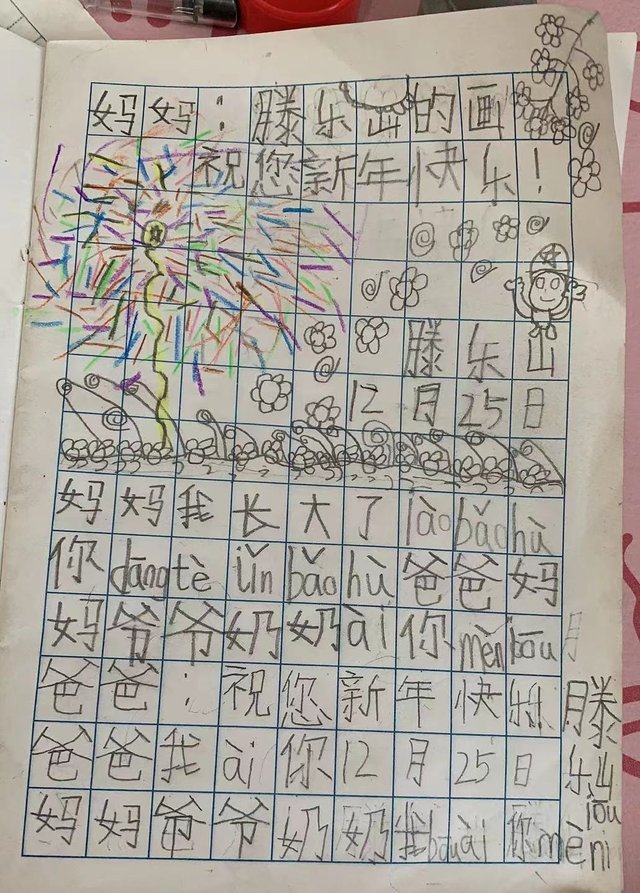 妈妈：滕乐山的画
祝您新年快乐！
滕乐山
12月25日
妈妈我长大了iàobǎohù
你dāngtèjǐnbǎohù爸爸妈
妈爷爷奶奶ài你mènbōu
爸爸：祝您新年快乐
滕乐山
爸爸我ài你12月25日
妈妈爷爷奶奶我bōuài你mèn